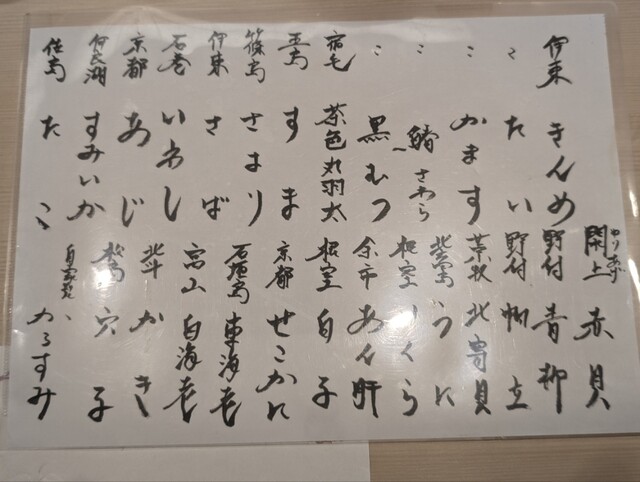 伊東 きんめ
〻 たい
〻 かます
〻 鰆 さわら
〻 黒むつ
宿毛 茶色丸羽太
五島 すま
篠島 さより
伊東 さば
石巻 いわし
京都 あじ
伊良湖 すみいか
佐島 たこ
閖上 ゆりあげ 赤貝
野付 青柳
野付 帆立
苫牧 北寄貝
うに
根室 いくら
余市 あん肝
根室 白子
京都 せこかに
石垣島 車海老
富山 白海老
北斗 かき
松島 穴子
自家製 からすみ